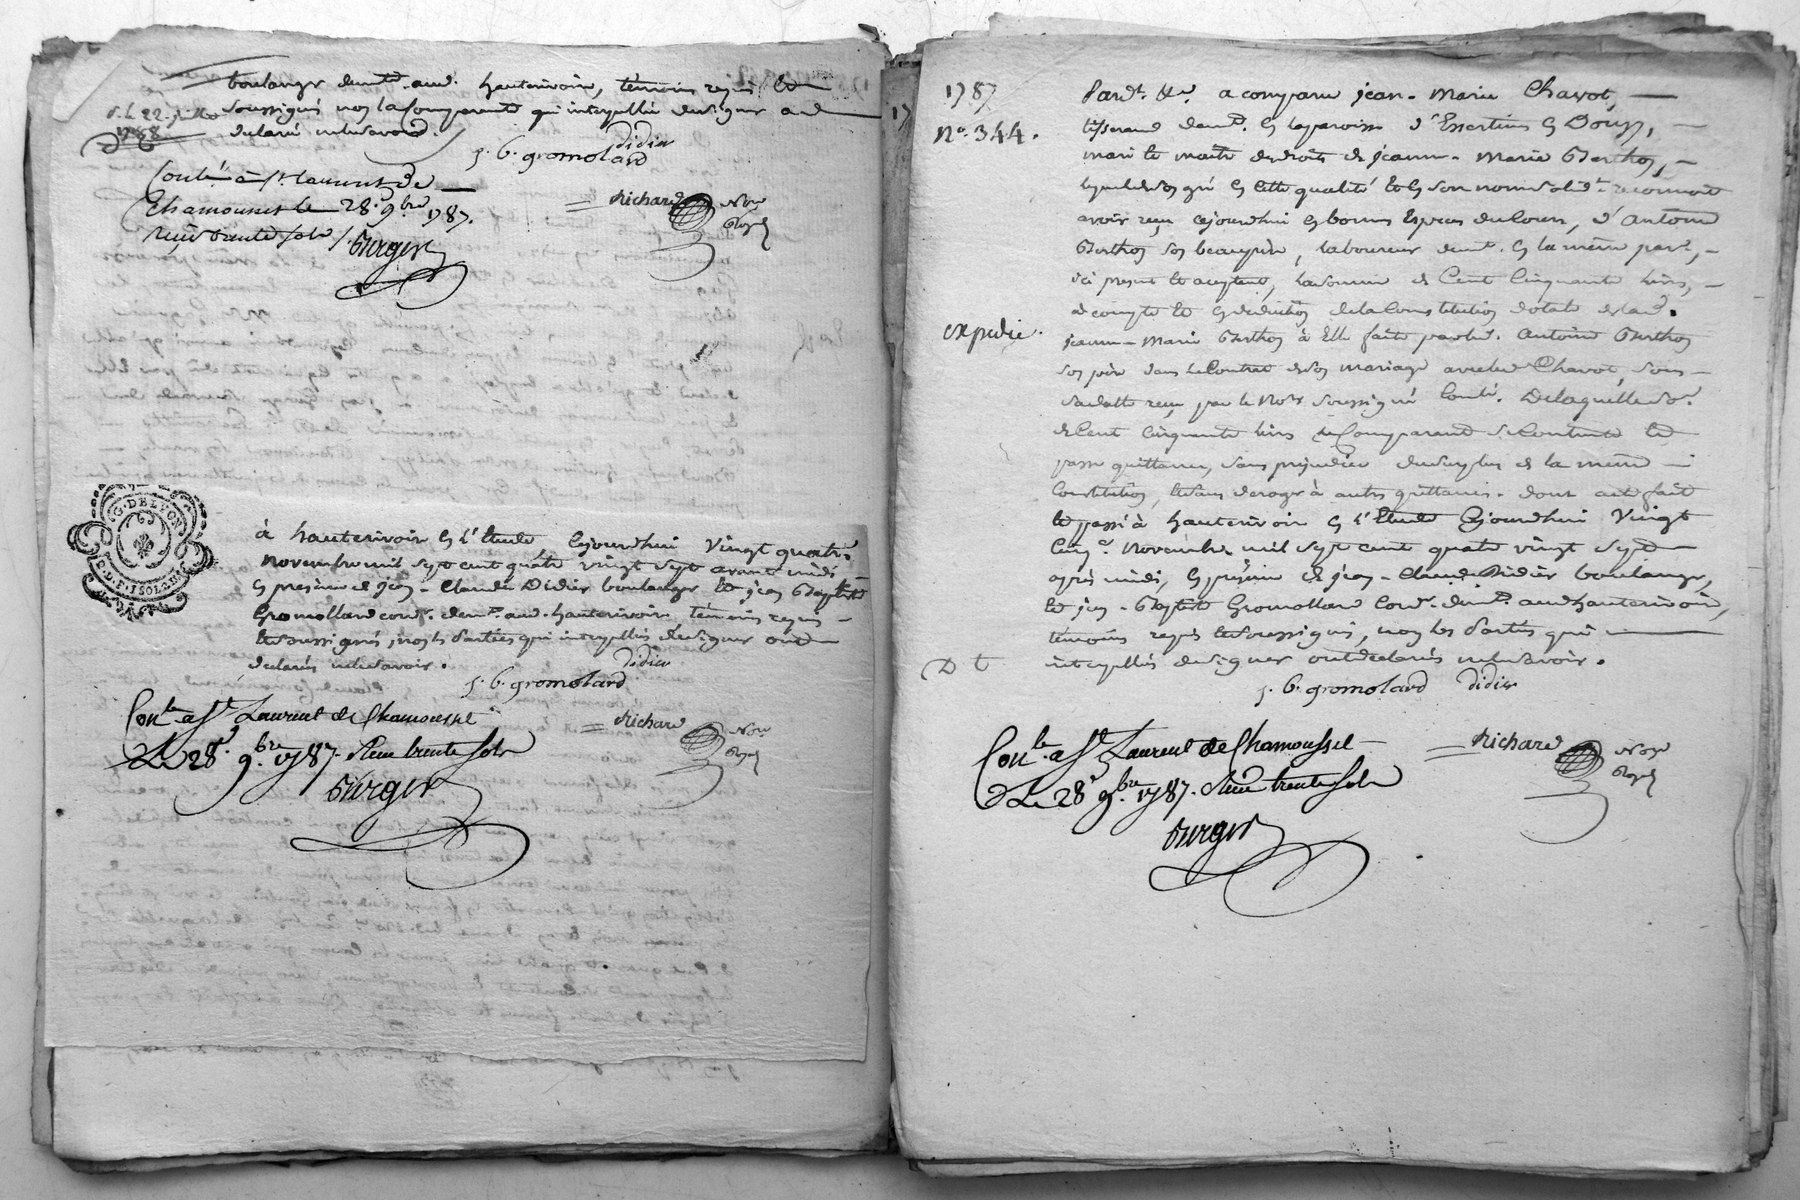 boulanger demt. aud. hauterivoire, témoins requis et
soussignés non la Comparante qui interpellée de signer a
déclaré ne le savoir.
d. L. 22.
1788
didier
j. b. gromolard
Richard
Nore
Royal
Conlé à St. Laurent de
Chamousset le 28. 9bre 1787.
reçu trente sols
Burger
G. DE LYON
à hauterivoire en l'Etude cejourdhui vingt quatre
novembre mil sept cent quatre vingt sept avant midi
en présence de jean-Claude Didier boulanger et jean Baptiste
Gromollard cordr. demt. aud. hauterivoire témoins requis
et soussignés, non les Parties qui interpellées de signer ont
déclaré ne le savoir.
didier
j. b. gromolard
Richard
Nore
Royal
Conle. a St. Laurent de Chamousset
Le 28. 9bre. 1787. Reçu trente sols
Burger
1787
No. 344.
Pardt. &a. a comparu jean-Marie Chavot,
tisserand demt. en la paroisse d'Essertines en Donzy,
mari et maître des droits de jeanne-Marie Berthon,
lequel de son gré en cette qualité et en son nom solide. reconnoit
avoir reçu cejourdhui en bonnes Especes du Cours, d'antoine
Berthon son beaupère, laboureur demt. en la même parr.,
ici présent et acceptant, la somme de Cent Cinquante livres,
à compte et en déduction de la Constitution dotale de lad.
expédié.
jeanne-Marie Berthon à Elle faite par led. antoine Berthon
son père dans le Contrat de son mariage avec led. Chavot, sous
sa datte reçu par le Nore soussigné Conlé. De laquelle so.
de Cent cinquante livres le Comparant se contente et
passe quittance, sans préjudice du surplus de la même
Constitution, et sans déroger à autres quittances. dont acte fait
et passé à hauterivoire en l'Etude Cejourdhui vingt
Cinq. Novembre mil sept cent quatre vingt sept
après midi, en présence de jean-Claude Didier boulanger,
et jean-Baptiste Gromollard Cordr. demt. aud hauterivoire,
témoins requis et soussignés, non les Parties qui
interpellées de signer ont déclaré ne le savoir.
D t
j. b. gromolard didier
Richard
Nore
Royal
Conle. a St. Laurent de Chamousset
Le 28 9bre. 1787. Reçu trente sols
Burger